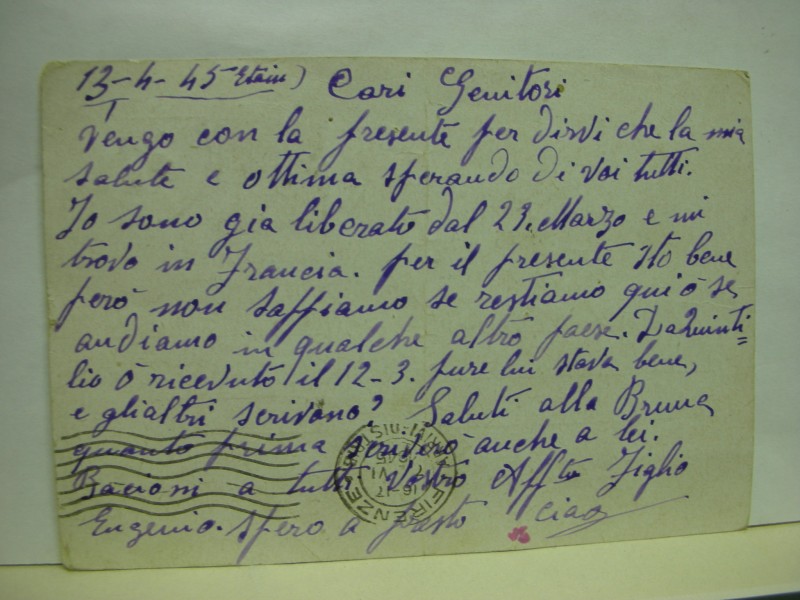 13-4-45 Etain) Cari Genitori
Vengo con la presente per dirvi che la mia
salute e ottima sperando di voi tutti.
Io sono gia liberato dal 29. Marzo e mi
trovo in Francia. per il presente sto bene
però non sappiamo se restiamo qui o se
andiamo in qualche altro paese. Da Quinti=
lio ò ricevuto il 12-3. pure lui stava bene,
e gli altri scrivono? Saluti alla Bruna
quanto prima scriverò anche a lei.
Bacioni a tutti Vostro Affto Figlio
Eugenio. spero a presto ciao
FIRENZE